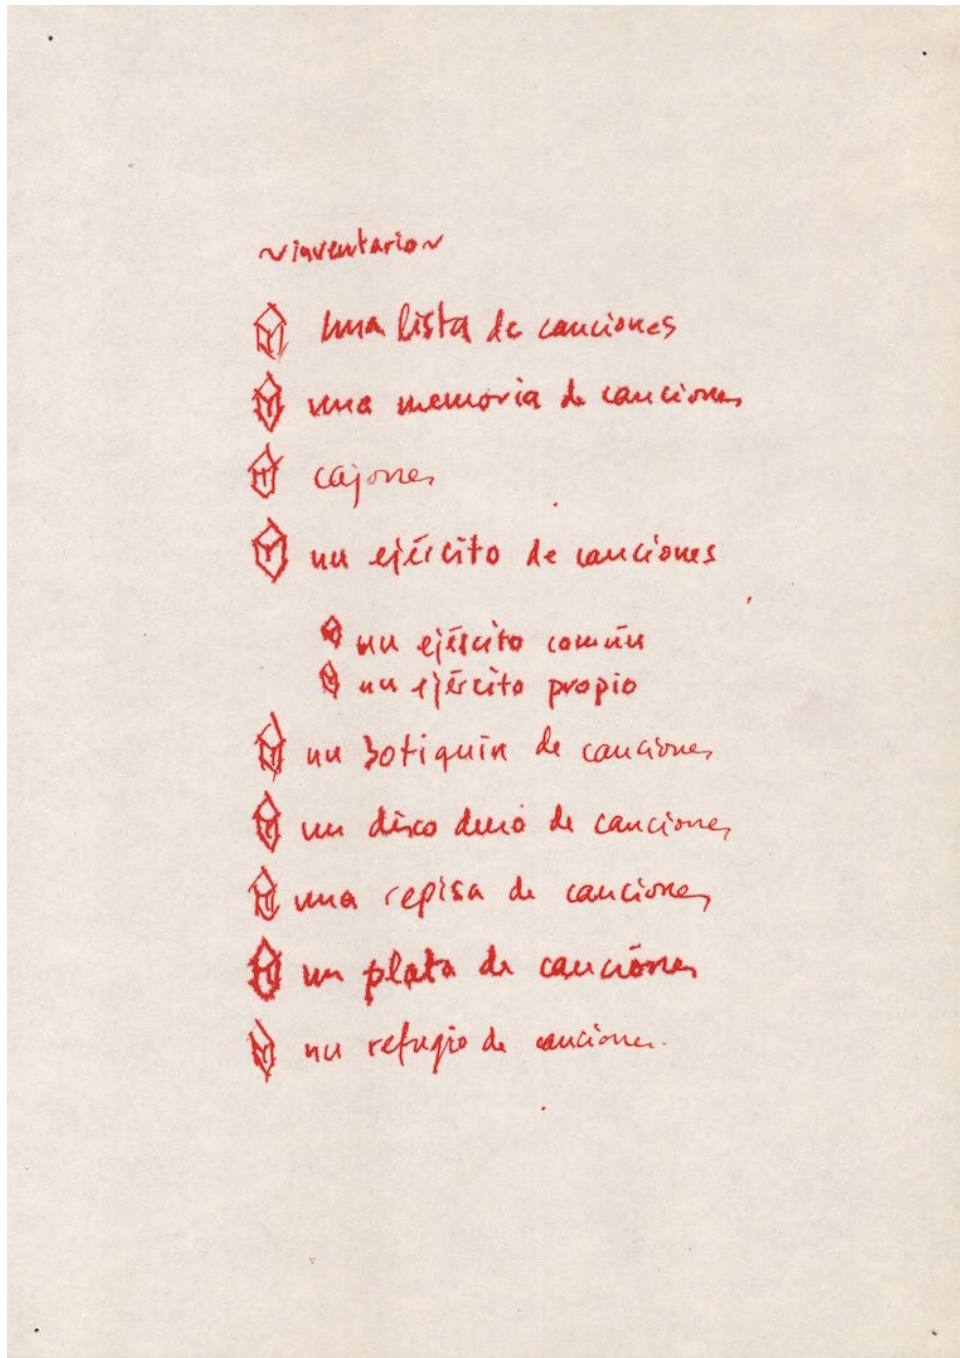 ~inventario~
una lista de canciones
una memoria de canciones
cajones
un ejército de canciones
un ejército común
un ejército propio
un botiquín de canciones
un disco duro de canciones
una repisa de canciones
un plato de canciones
un refugio de canciones.